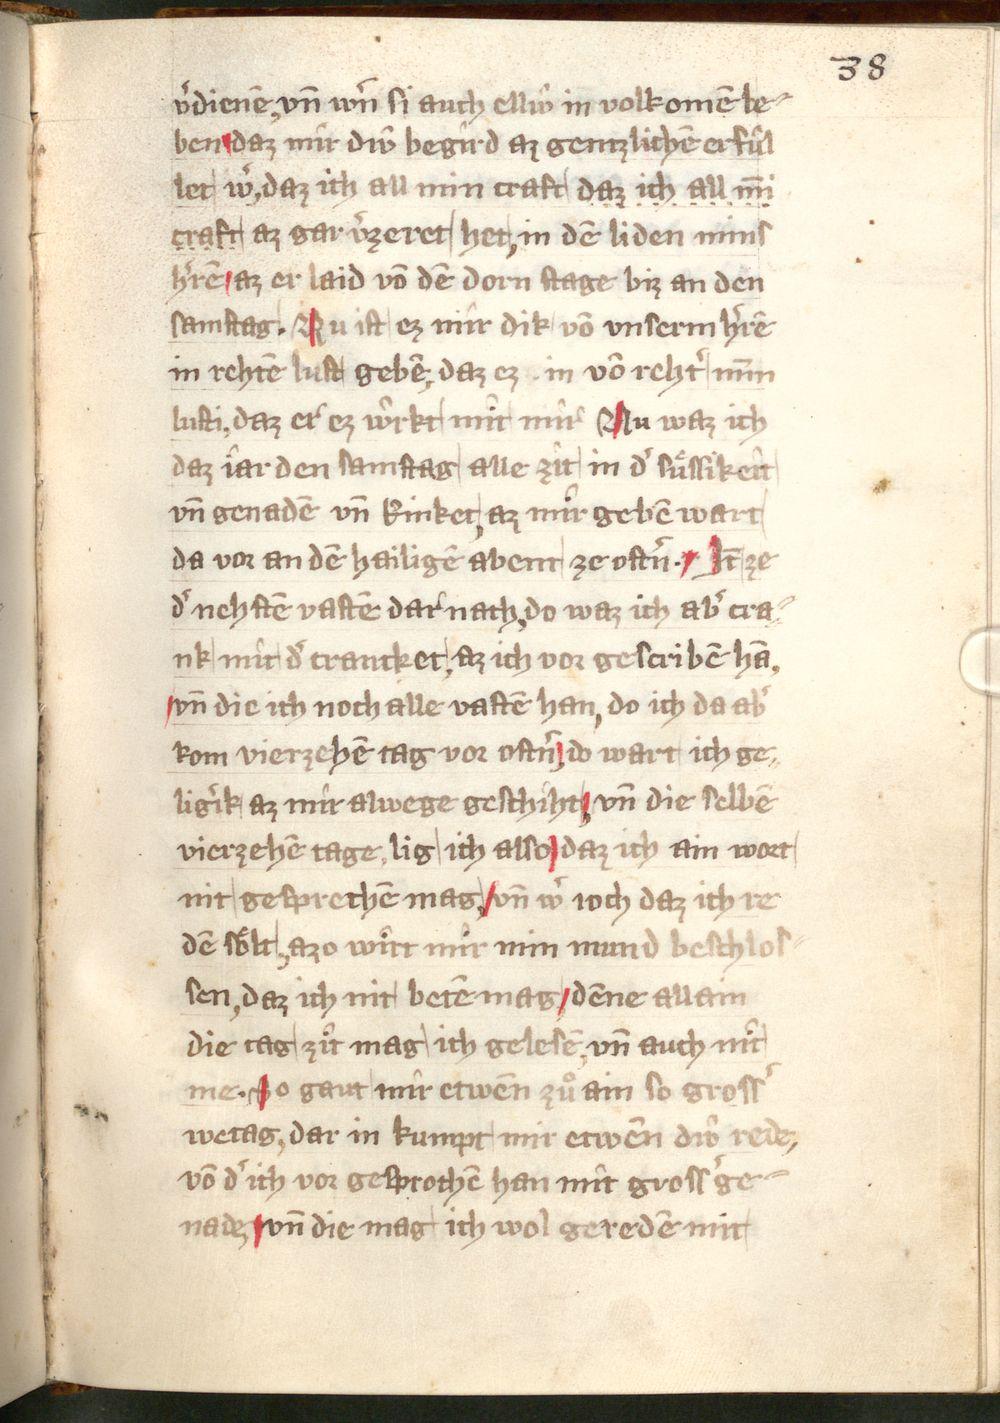 38
v̓dienē, vn̄ wn̄ si auch ellw̑ in volkomē le-
ben daz mir dw̑ begird az gentzlichē erfúl
let w̓, daz ich all min craft daz ich all mī
craft az gar v̓zeret het, in dē liden mins
h̓rē az er laid vō dē dorn stage biz an den
samstag. Nu ist ez mir dik vō vnserm h̓rē
in rehtē lust gebē, daz ez in vō reht̓ min
lusti, daz er ez wrkt mit mir Nu waz ich
daz iar den samstag alle zit in d̓ sůssikeit
vn̄ genadē vn̄ kinket, az mir gebē wart
da vor an dē hailigē abent ze ostn̓. It̄ ze
d̓ nehstē vastē dar nach, do waz ich ab̓ cra-
nk mit d̓ cranket, az ich vor gescribē hā,
vn̄ die ich noch alle vastē han, do ich da ab̓
kom vierzehē tag vor ostn̓ do wart ich ge,
lig̓ik az mir alwege geschiht, vn̄ die selbē
vierzehē tage, lig ich also daz ich ain wort
nit gesprechē mag, vn̄ w̓ ioch daz ich re
dē sölt, azo wirt mir min mund beschlos-
sen, daz ich nit betē mag dēne allain
die tag zit mag ich gelesē, vn̄ auch nit
me. So gaut mir etwēn zů ain so gross̓
wetag, dar in kumpt mir etwēn dw̑ rede,
vō d̓ ich vor gesprochē han mit gross̓ ge-
nadez vn̄ die mag ich wol geredē mit